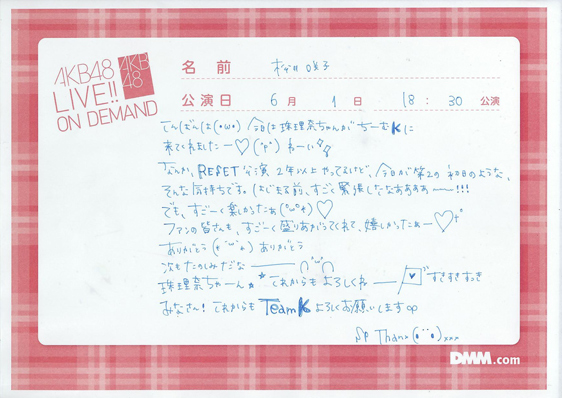 AKB48
LIVE!!
ON DEMAND
AKB
48
名前
公演日 6月 1日 18:30 公演
こんばんは(・ω・) 今日は珠理奈ちゃんがちーむKに
来てくれましたー♡ わーい
なんか、RESET公演 2年以上やってるけど、今日が第2の初日のような、
そんな気持ちです。はじまる前、すごく緊張したなぁぁぁぁー!!!
でも、すごーく楽しかったぁ ♡
ファンの皆さんも、すごーく盛りあがってくれて、嬉しかったぁー♡
ありがとう ありがとう
次もたのしみだなー
珠理奈ちゃーん これからもよろしくねー すきすきすっき
みなさん! これからも TeamK よろしくお願いします∞
Thanx xxx
DMM.com